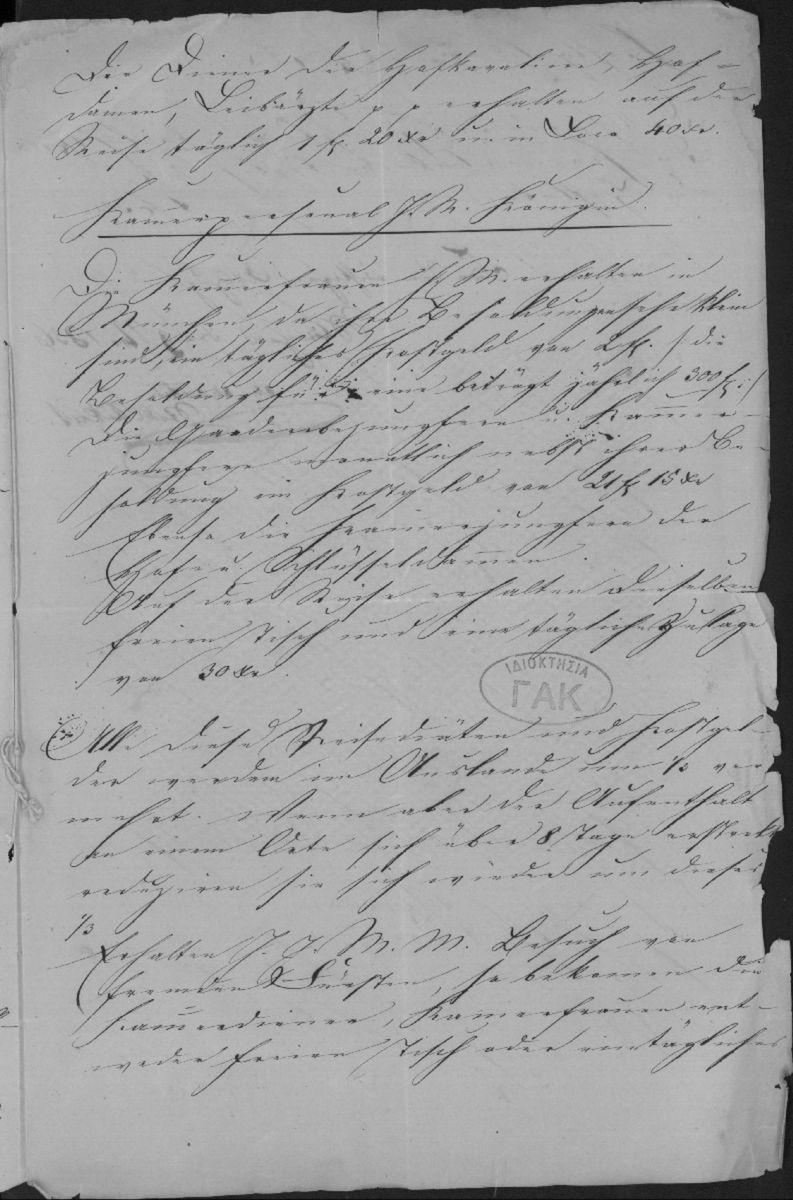 Die Diener der Hofkavaliere, Hof-
damen, Leibärzte p. p. erhalten auf der
Reise täglich 1 f. 20 Xr u. in Loco 40 Xr.
Kamerpersonal I. M. Königin.
Die Kamerfrauen I. M. erhalten in
München, da ihre Besoldungen sehr klein
sind, ein tägliches Kostgeld von 2 f. /: die
Besoldung für eine beträgt jährlich 300 f. :/
Die Garderobejungfern u. Kamer-
jungfern monatlich nebst ihrer Be-
soldung ein Kostgeld von 21 f 15 Xr
Ebenso die Kamerjungfern der
Hof u. Schlüsseldamen.
Auf der Reise erhalten dieselben
freien Tisch und eine tägliche Zulage
von 30 Xr.
ΙΔΙΟΚΤΗΣΙΑ
ΓΑΚ
Alle diese Reisediäten und Kostgel-
der werden im Auslande um 1/3 ver
mehrt. Wenn aber der Aufenthalt
an einem Orte sich über 8 Tage erstreckt
reduziren sie sich wieder um dieses
1/3
Erhalten I. I. M. M. Besuch von
fremden Fürsten, so bekomen die
Kamerdiener, Kamerfrauen ent-
weder freien Tisch oder ein tägliches